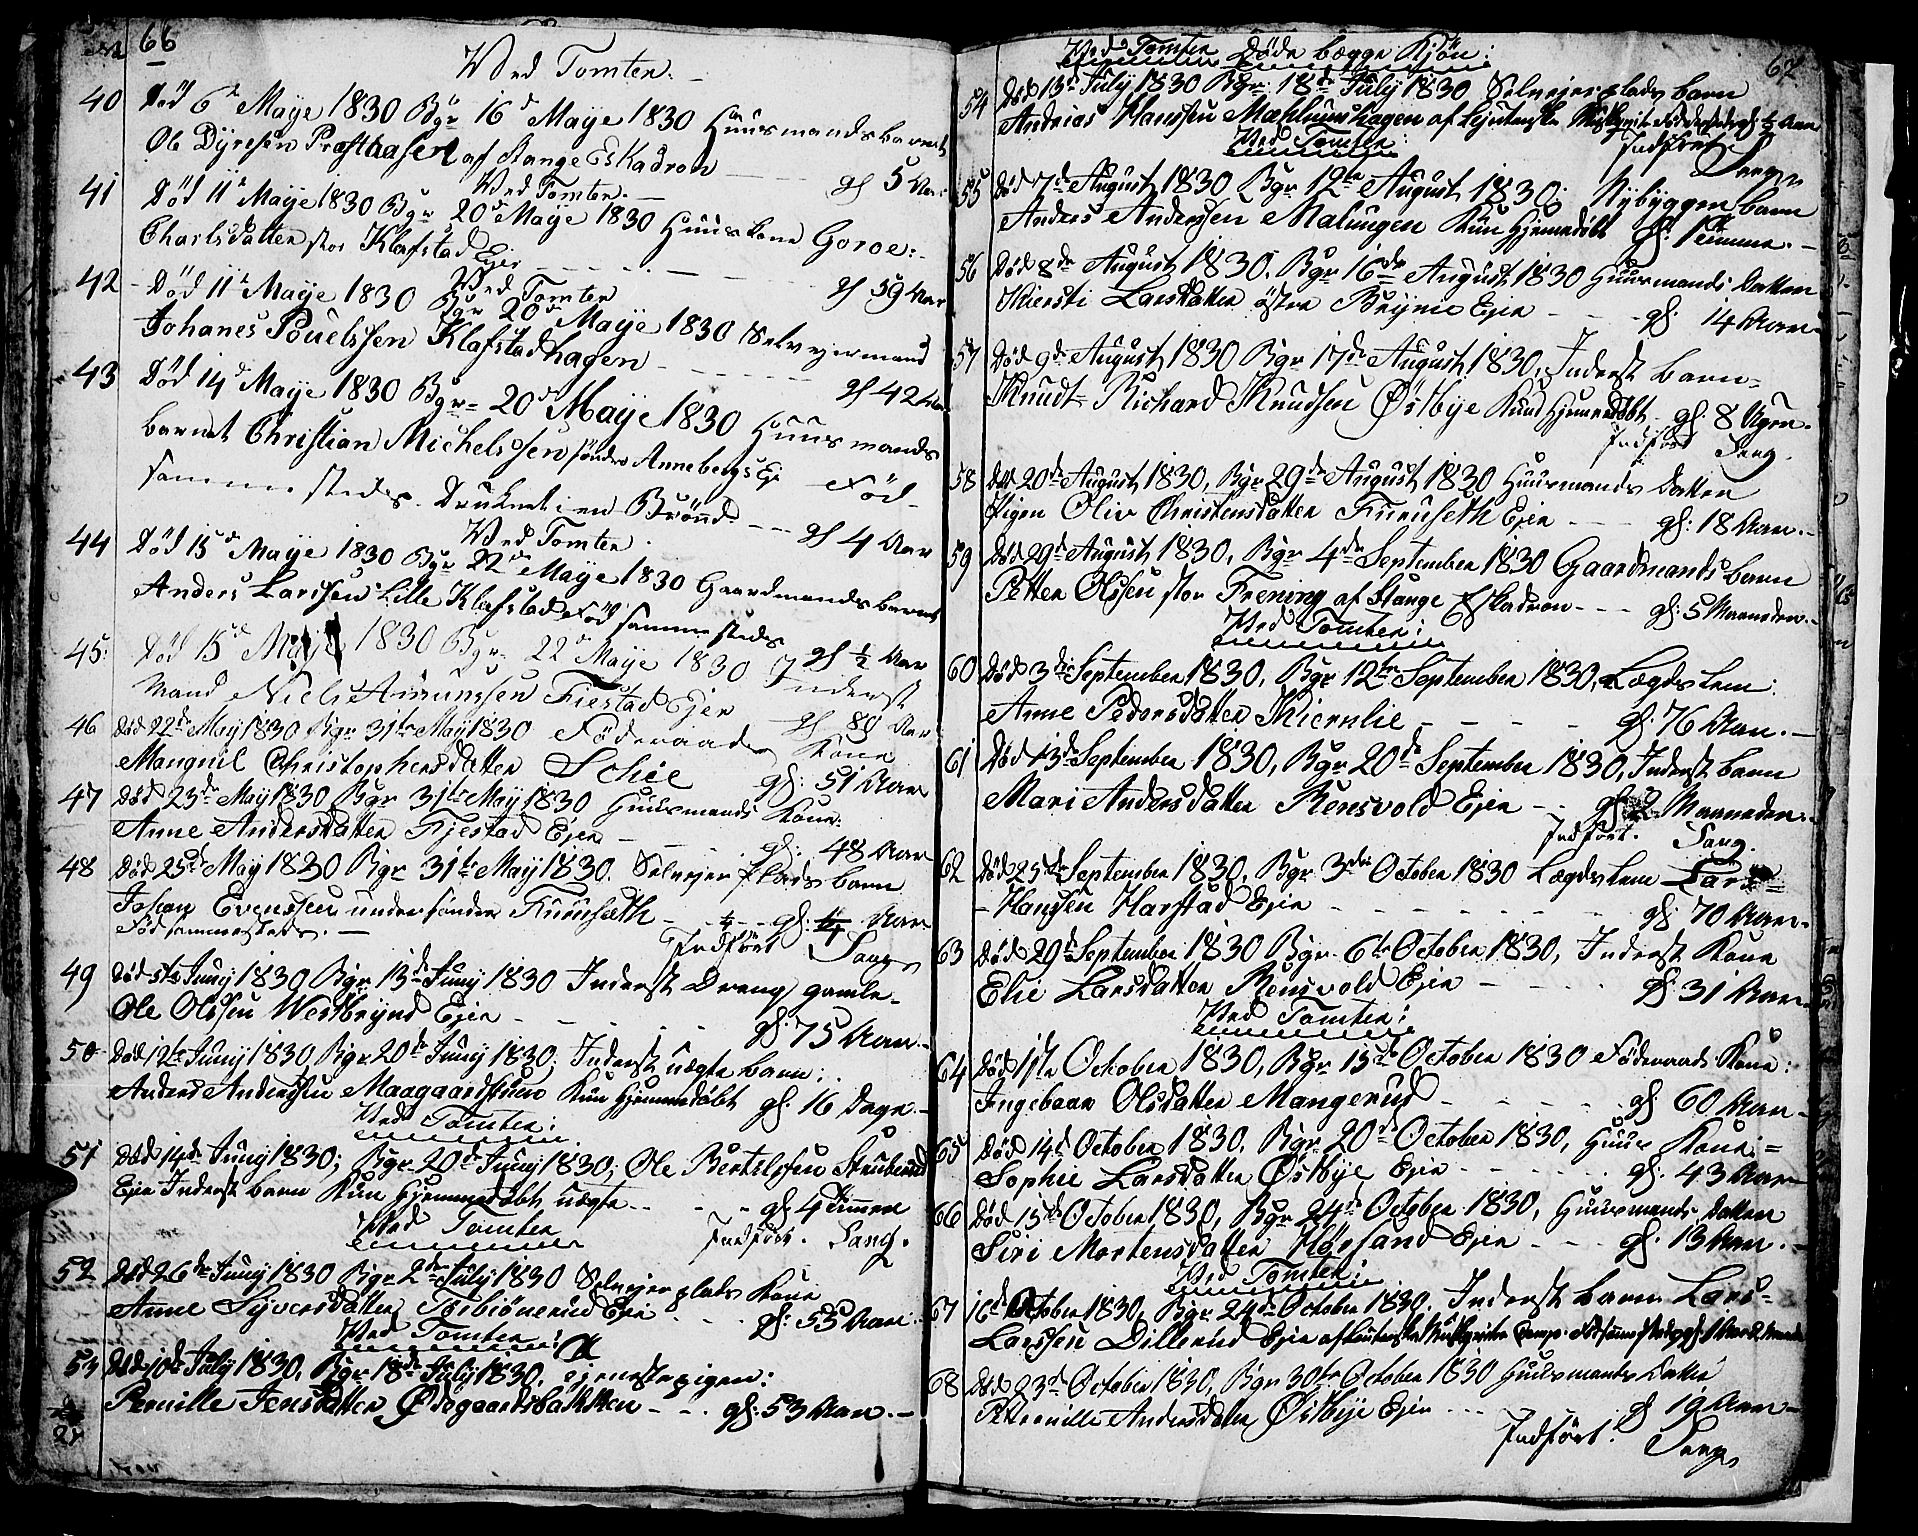 66
Ved Tomten.
40 Død 6te Maye 1830 Bgr 16d Maye 1830 Huusmandsbarnet
Ole Dyresen Præsthasen af Stange Eskadron gl 5 Aar
Ved Tomten
41 Død 11te Maye 1830 Bgr 20d Maye 1830 Huuskone Goroe
Charlsdatter stor Klafstad Ejer gl 59 Aar
Ved Tomten
42 Død 11te Maye 1830 Bgr 20de Maye 1830 Selvejermand
Johanes Pouelssen Klafstadhagen gl 42 Aar
43 Død 14d Maye 1830 Bgr 20d Maye 1830 Huusmands
barnet Christian Michelssen søndre Annebergs Eje Fød
sammesteds. Druknet i en Brønd gl 4 Aar
Ved Tomten
44 Død 15d Maye 1830 Bgr 22de Maye 1830 Gaardmandsbarnet
Anders Larssen Lille Klafstad Fød sammesteds
gl ½ Aar
45 Død 15d Maye 1830 Bgr 22d Maye 1830 Inderst
Mand Niels Amunssen Fiestad Ejer gl 80 Aar
46 Død 22de May 1830 Bgr 31te May 1830 Føderaads Kone
Mangnil Christophersdatter Schie gl: 51 Aar
47 Død 23de May 1830 Bgr 31te May 1830 Huusmands Kone
Anne Andersdatter Fjestad Ejer gl: 48 Aar
48 Død 25de May 1830 Bgr 31te May 1830. Selvejer plads barn
Johan Evenssen under søndre Furuseth gl: ¼ Aar
Fød sammesteds. Indført Sang
49 Død 5te Juny 1830 Bgr 13de Juny 1830 Inderst Dreng gamle
Ole Olssen Westbrynd Ejer gl: 75 Aar
50 Død 12te Juny 1830 Bgr 20de Juny 1830; Inderst uægte barn:
Anders Anderssen Maagaards Kun Hjemmedøbt gl: 16 Dage
Ved Tomten:
51 Død 14de Juny 1830; Bgr 20de Juny 1830; Ole Bertelssen
Ejer Inderst barn Kun Hjemmedøbt, uægte gl: 4 Timer
Ved Tomten Indført. Sang.
52 Død 26de Juny 1830 Bgr 2den July 1830 Selvejer plads Kone
Anne Syversdatter Torbiönerud Ejer gl: 55 Aar
Ved Tomten:
53 Død 10de July 1830. Bgr 18de July 1830. tjenestepigen:
Pernille Jensdatter Ødegaardsbakken gl: 53 Aar.
67
Ved Tomten Døde begge Kjön:
54 Død 13de July 1830 Bgr 18de July 1830 Selvejerplads barn
Andreas Hanssen Mæhlumshagen af gl: ½ Aar
Ved Tomten: Indført Sang
55 Død 7de August 1830 Bgr 12te August 1830; Nybyggers barn
Anders Anderssen Malungen Kun Hjemmedøbt gl: 1 Timme.
56 Død 8de August 1830. Bgr 16de August 1830 Huusmands Datter
Kiersti Larsdatter östre Brynie Ejer gl: 14 Aar
57 Død 9de August 1830 Bgr 17de August 1830, Inderst barn
Knudt Richard Knudsen Østbye Kund Hjemmedøbt gl: 8 Uger.
Indført Sang.
58 Død 20de August 1830, Bgr 29de August 1830 Huusmands Datter
Pigen Oliv Christensdatter Furuseth Ejer gl: 18 Aar.
59 Død 29de August 1830, Bgr 4de September 1830 Gaardmands barn
Petter Olssen stor Frening af Stange Eskadron gl: 5 Maaneder.
Ved Tomten:
60 Død 3die September 1830, Bgr 12te September 1830, Lægds lem:
Anne Pedersdatter Kiernlie gl: 76 Aar.
61 Død 13de September 1830, Bgr 20de September 1830, Inderst barn
Mari Andersdatter Rensvold Ejer gl: 2 Maaneder.
Indført. Sang.
62 Død 25de September 1830, Bgr 3die October 1830 Lægdslem Lars
Hansen Harstad Ejer gl: 70 Aar
63 Død 29de September 1830 Bgr 6te October 1830, Inderst Kone
Elie Larsdatter Rensvold Ejer gl: 31 Aar
Ved Tomten:
64 Død 11te October 1830, Bgr 15de October 1830 Föderaads Kone:
Ingebaar Olsdatter Mangerud gl: 60 Aar
65 Død 14d October 1830. Bgr 20de October 1830, Huus Kone
Sophie Larsdatter Østbye Ejer gl: 43 Aar
66 Død 15de October 1830, Bgr 24de October 1830, Huusmands Datter
Siri Mortensdatter Hørsand Ejer gl: 13 Aar.
Ved Tomten:
67 16d October 1830, Bgr 24de October 1830. Inderst barn Lars
Larssen Dillerud Ejer af
68 Død 23de October 1830, Bgr 30te October 1830 Huusmands Datter
Peternille Andersdatter Østbye Ejer gl 19 Aar
Indført. Sang